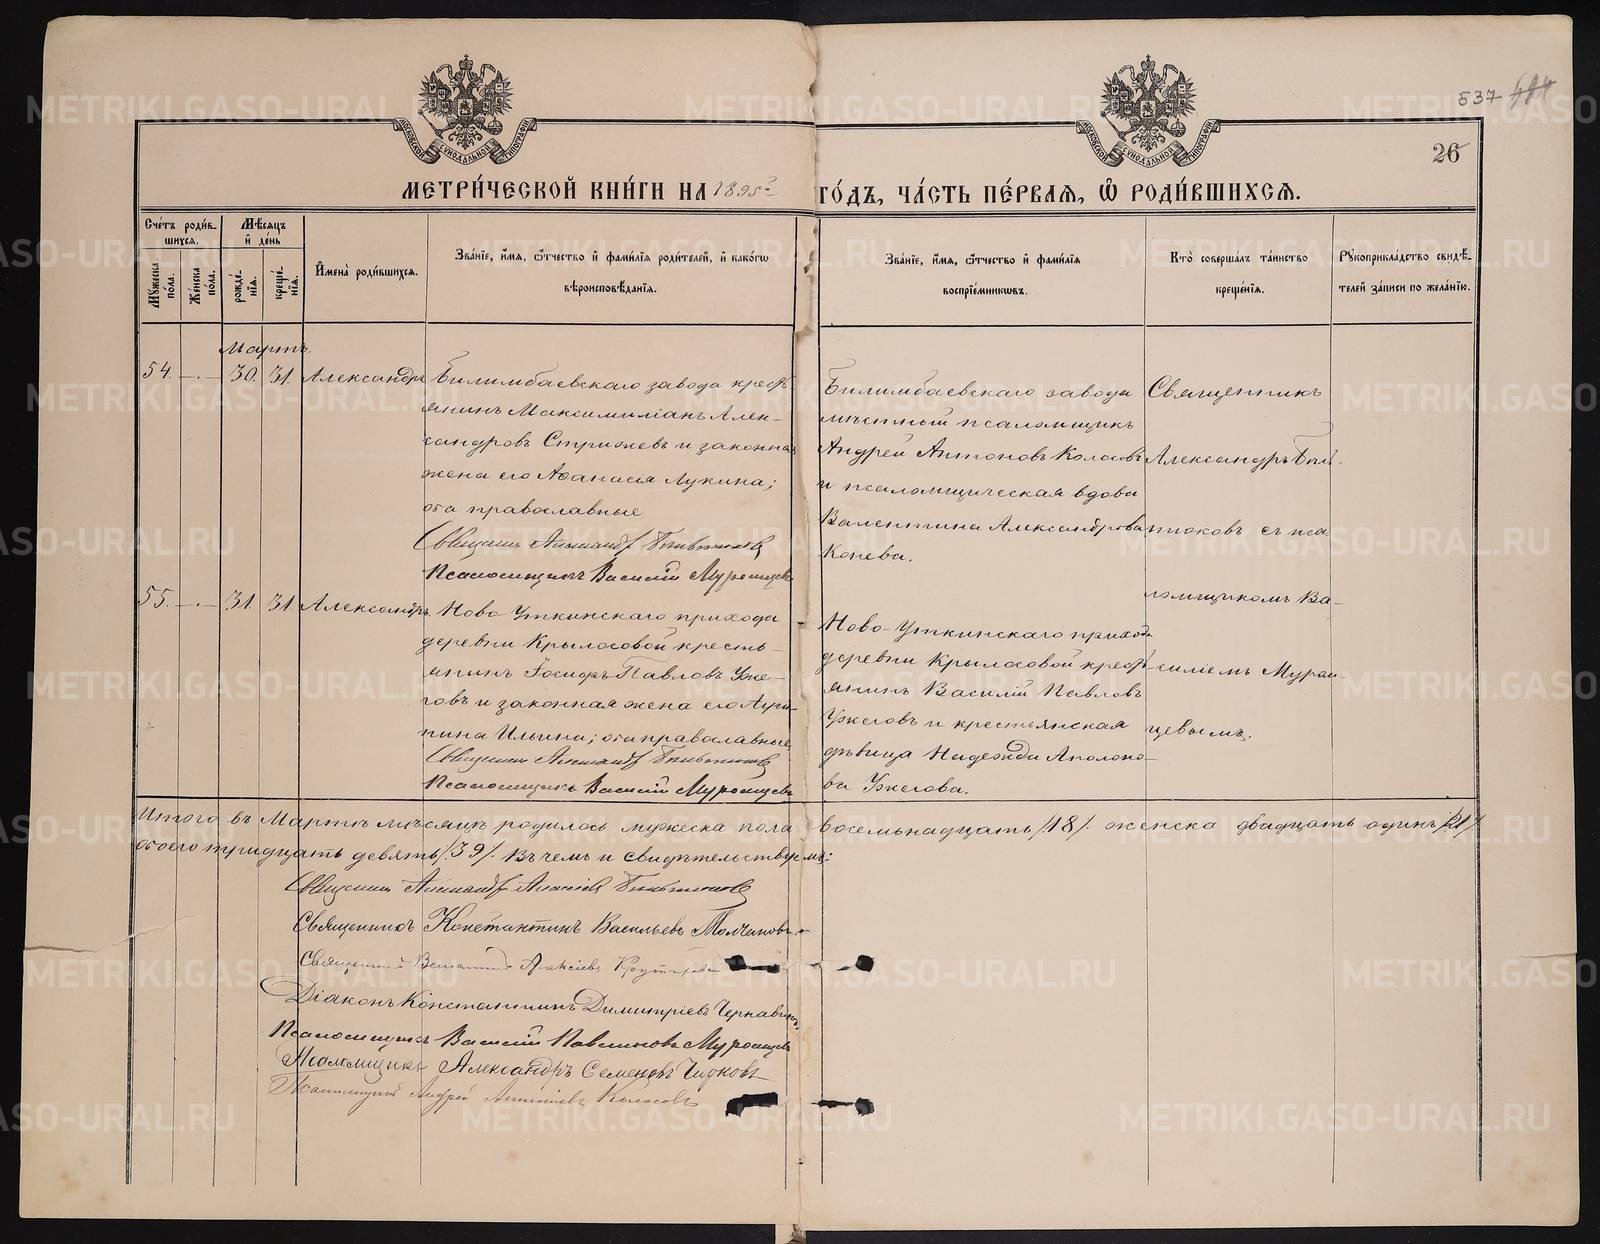 537
26
МЕТРИ́ЧЕСКОЙ КНИ́ГИ НА 1895 ГО́ДЪ, ЧА́СТЬ ПЕ́РВАЯ, Ѽ РОДИ́ВШИХСЯ.
Сче́тъ роди́в-
шихся.
Мѣ́сяцъ
и де́нь
Му́жеска по́ла.
Же́нска по́ла.
рожде́нїя.
креще́нїя.
И҆мена̀ роди́вшихся.
Зва́нїе, и҆́мя, ѻ҆́тчество и҆ фами́лїя роди́телей, и҆ како́гѡ
вѣроисповѣ́данїя.
Зва́нїе, и҆́мя, ѻ҆́тчество и҆ фами́лїя
воспрїе́мникѡвъ.
Кто̀ соверша́лъ та́инство
креще́нїя.
Рꙋкоприкла́дство свидѣ́-
телей за́писи по жела́нїю.
Мартъ.
54. — . — 30. 31. Александръ
Билимбаевскаго завода крест-
янинъ Максимиліанъ Алек-
сандровъ Стрижевъ и законная
жена его Аѳанасія Лукина;
оба православные
Священникъ Александръ
Псаломщикъ Василій Муромцевъ
Билимбаевскаго завода
мѣстный псаломщикъ
Андрей Антоновъ Колосовъ
и псаломщическая вдова
Валентина Александрова
Конева.
Священникъ
Александръ Бить-
тюковъ съ пса-
ломщикомъ Ва-
силіемъ Муром-
цевымъ.
55. — . — 31. 31. Александръ.
Ново-Уткинскаго прихода
деревни Крылосовой кресть-
янинъ Іосифъ Павловъ Уже-
говъ и законная жена его Агри-
пина Ильина; оба православные
Священникъ Александръ
Псаломщикъ Василій Муромцевъ
Ново-Уткинскаго прихода
деревни Крылосовой крест-
янинъ Василій Павловъ
Ужеговъ и крестьянская
дѣвица Надежда Аполоно-
ва Ужегова.
Итого въ Мартѣ мѣсяцѣ родилось мужеска пола восемьнадцать /18/. женска двадцать одинъ /21/
обоего тридцать девять /39/. Въ чемъ и свидѣтельствуемъ:
Священникъ Александръ Алексіевъ
Священникъ Константинъ Васильевъ Молчановъ
Священникъ Алексіевъ
Діаконъ Константинъ Димитріевъ Чернавинъ
Псаломщикъ Василій Павлиновъ Муромцевъ
Псаломщикъ Александръ Семеновъ Чирковъ
Псаломщикъ Андрей Антоніевъ Колосовъ
МОСКОВСКОЙ СѴНОДАЛЬНОЙ ТИПОГРАФІИ
МОСКОВСКОЙ СѴНОДАЛЬНОЙ ТИПОГРАФІИ
METRIKI.GASO-URAL.RU